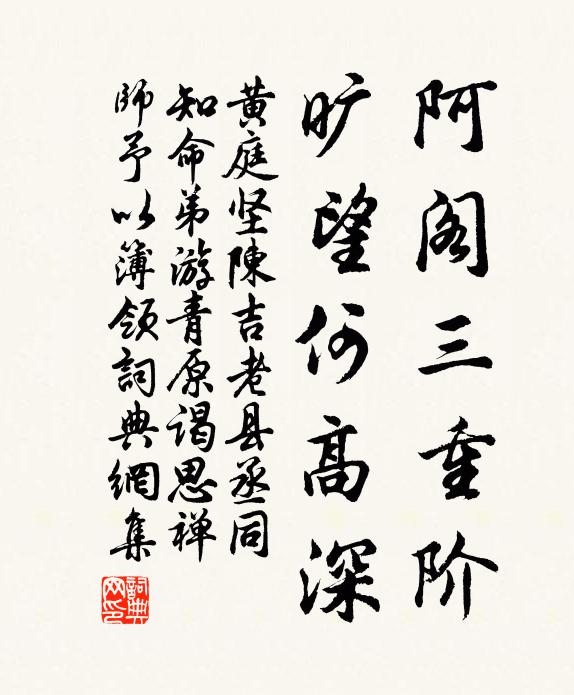 阿阁三重阶
旷望何高深
黄庭坚陳吉老县丞同
知命弟游青原谒思禅
師予以簿领詞典網集
詞典网印